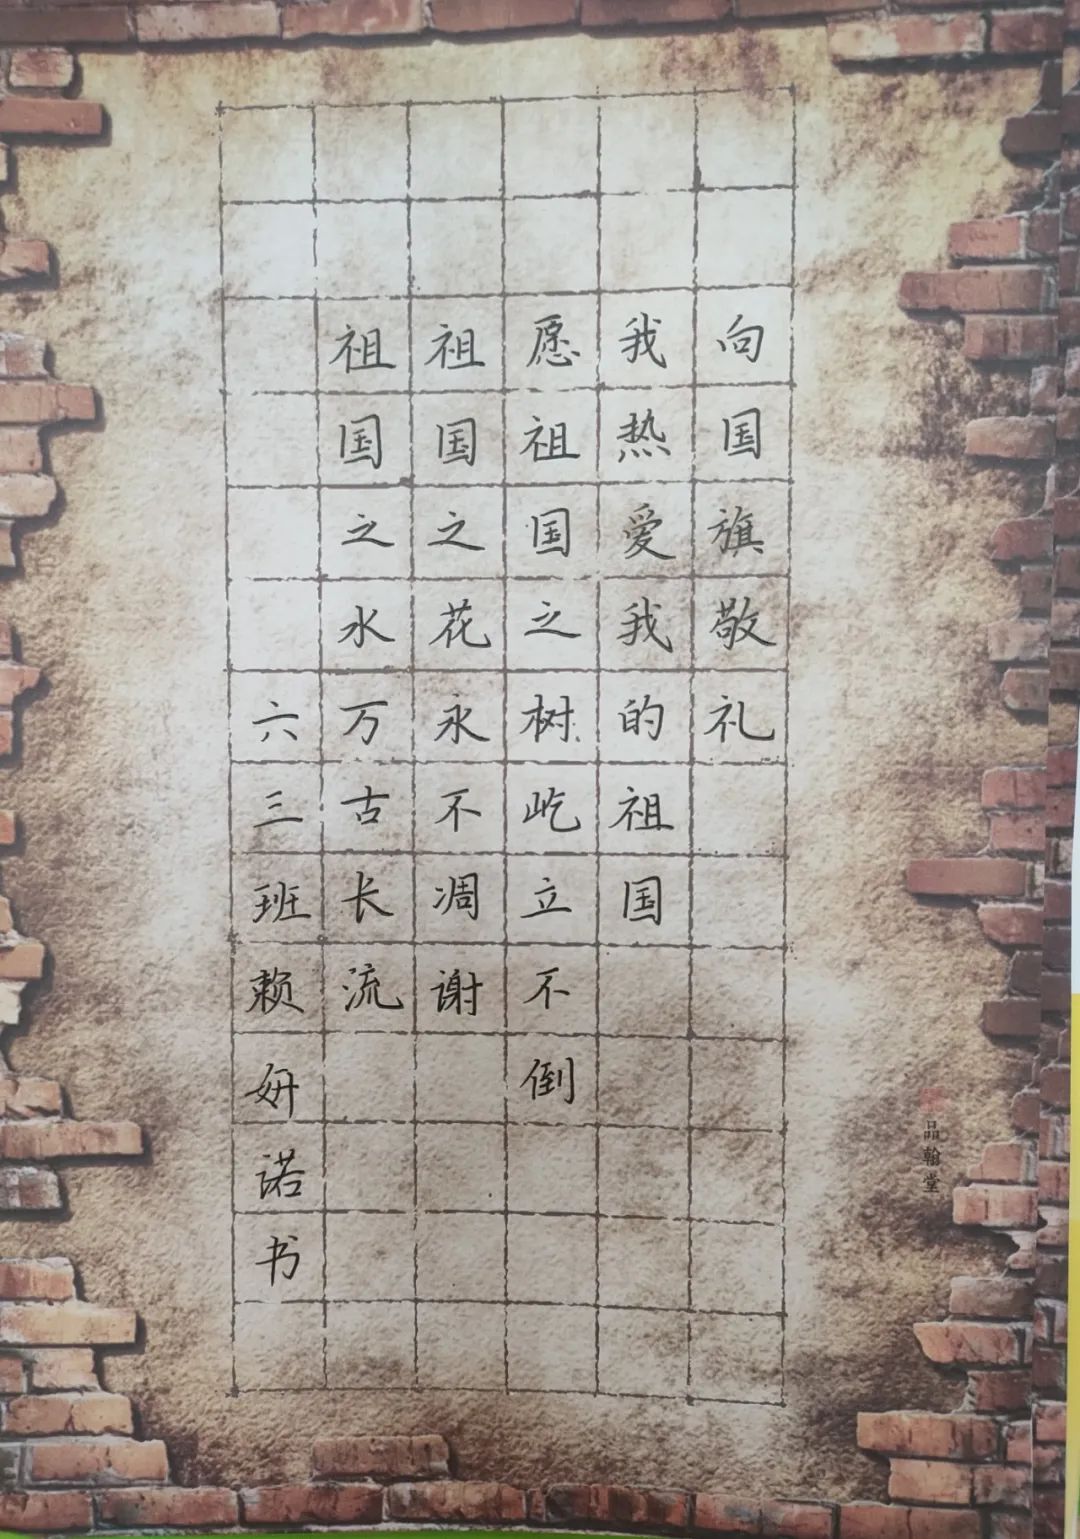 向国旗敬礼
我热爱我的祖国
愿祖国之树屹立不倒
祖国之花永不凋谢
祖国之水万古长流
六三班赖妍诺书
品翰堂